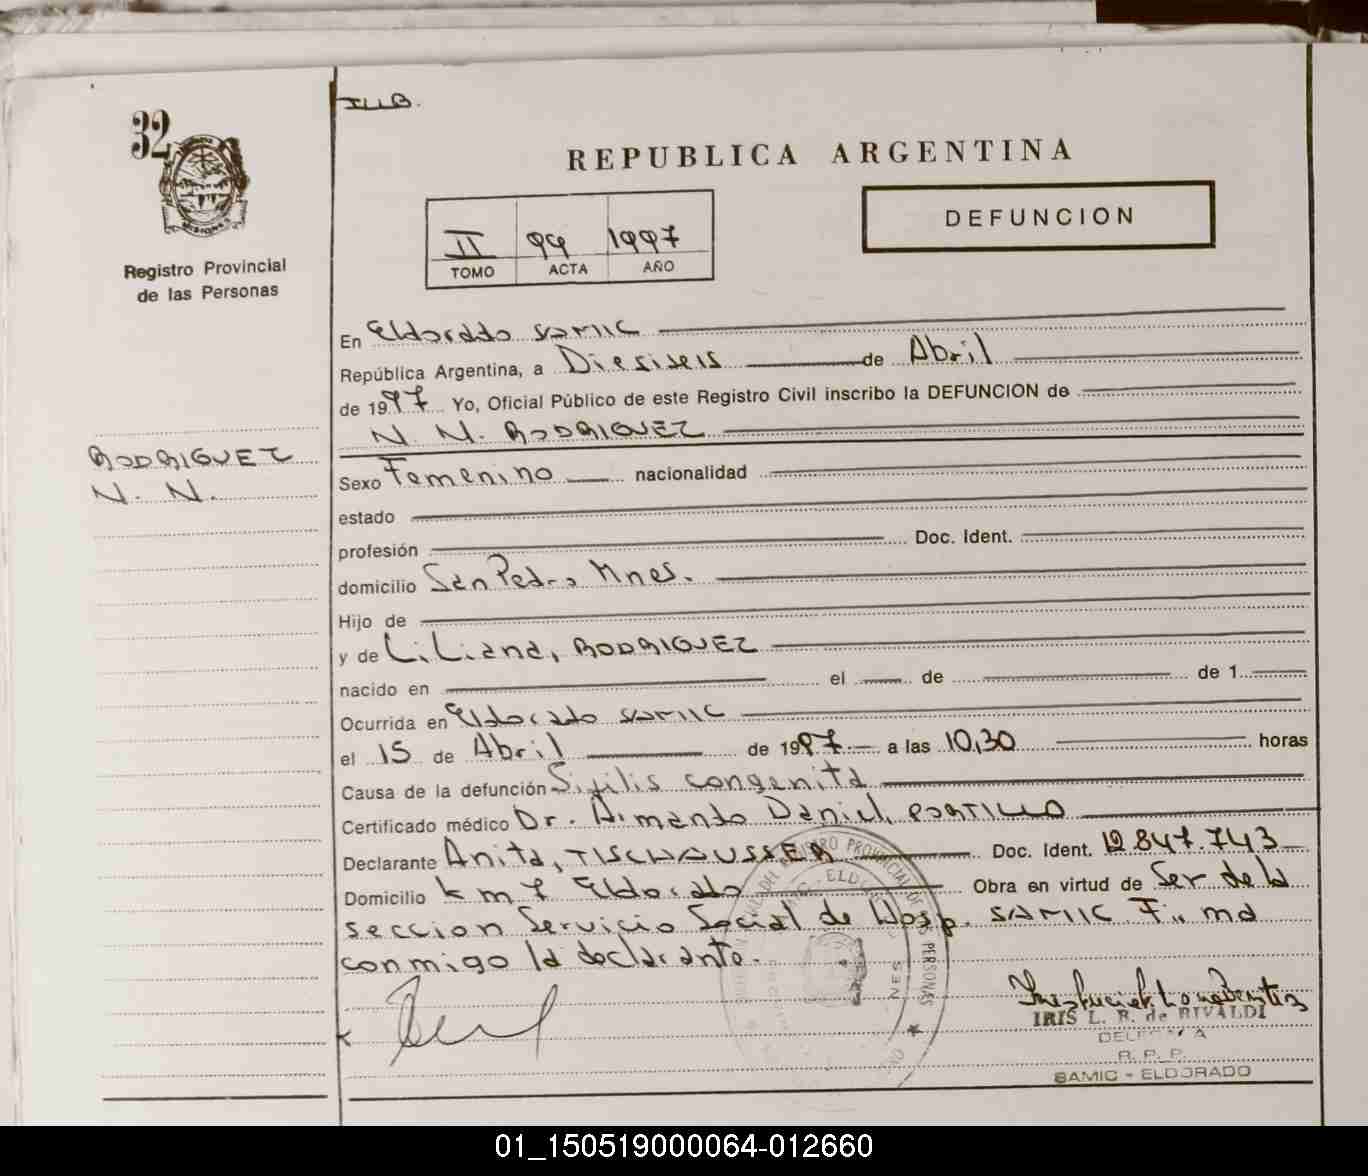 32
Registro Provincial
de las Personas
RODRIGUEZ
N. N.
REPUBLICA ARGENTINA
DEFUNCION
II 99 1997
TOMO ACTA AÑO
En Eldorado SAMIC
República Argentina, a Diesiseis de Abril
de 1997 Yo, Oficial Público de este Registro Civil inscribo la DEFUNCION de
N. N. RODRIGUEZ
Sexo Femenino nacionalidad
estado
profesión Doc. Ident.
domicilio San Pedro, Mnes.
Hijo de
y de Liliana, RODRIGUEZ
nacido en el de de 1
Ocurrida en Eldorado SAMIC
el 15 de Abril de 1997 a las 10,30 horas
Causa de la defunción Sifilis congenita
Certificado médico Dr. Armando Daniel, PORTILLO
Declarante Anita, TISCHAUSSER Doc. Ident. 12.847.743
Domicilio km 9 Eldorado Obra en virtud de Ser de la
seccion Servicio Social de Hosp. SAMIC Firma
conmigo la declarante.
IRIS L. B. de RIVALDI
DELEGADA
R. P. P.
SAMIC - ELDORADO
01_150519000064-012660